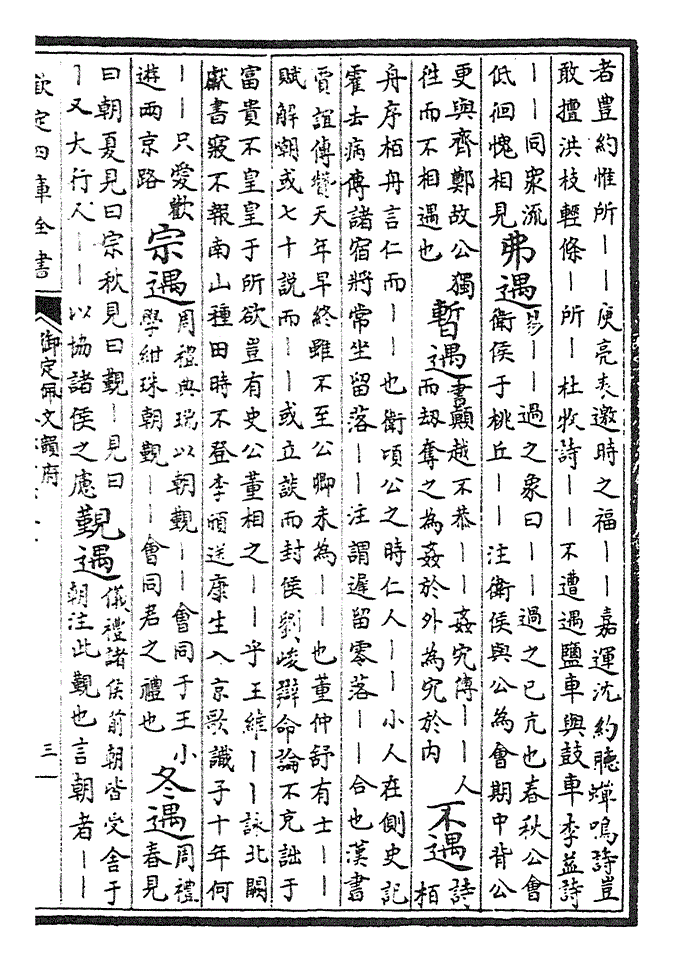 者豐約惟所｜｜庾亮表邀時之福｜｜嘉運沈約聽蟬鳴詩豈
敢擅洪枝輕條｜所｜杜牧詩｜｜不遭遇鹽車與鼓車李益詩
｜｜同衆流
低徊愧相見
弗遇
易｜｜過之象曰｜｜過之已亢也春秋公會
衛侯于桃丘｜｜注衛侯與公為會期中背公
更與齊鄭故公獨
往而不相遇也
暫遇
書顛越不恭｜｜姦宄傳｜｜人
而刼奪之為姦於外為宄於内
不遇
詩
栢
舟序栢舟言仁而｜｜也衛頃公之時仁人｜｜小人在側史記
霍去病傳諸宿將常坐留落｜｜注謂遲留零落｜｜合也漢書
賈誼傳贊天年早終雖不至公卿未為｜｜也董仲舒有士｜｜
賦解朝或七十説而｜｜或立談而封侯劉峻辯命論不充詘于
富貴不皇皇于所欲豈有史公董相之｜｜乎王維｜｜詠北闕
獻書寢不報南山種田時不登李頎送康生入京歌識子十年何
｜｜只愛歡
遊兩京路
宗遇
周禮典瑞以朝覲｜｜會同于王小
學紺珠朝覲｜｜會同君之禮也
冬遇
周禮
春見
曰朝夏見曰宗秋見曰覲｜見曰
｜又大行人｜｜以協諸侯之慮
覲遇
儀禮諸侯前朝皆受舍于
朝注此覲也言朝者｜｜
欽定四庫全書
御定佩文韻府
三